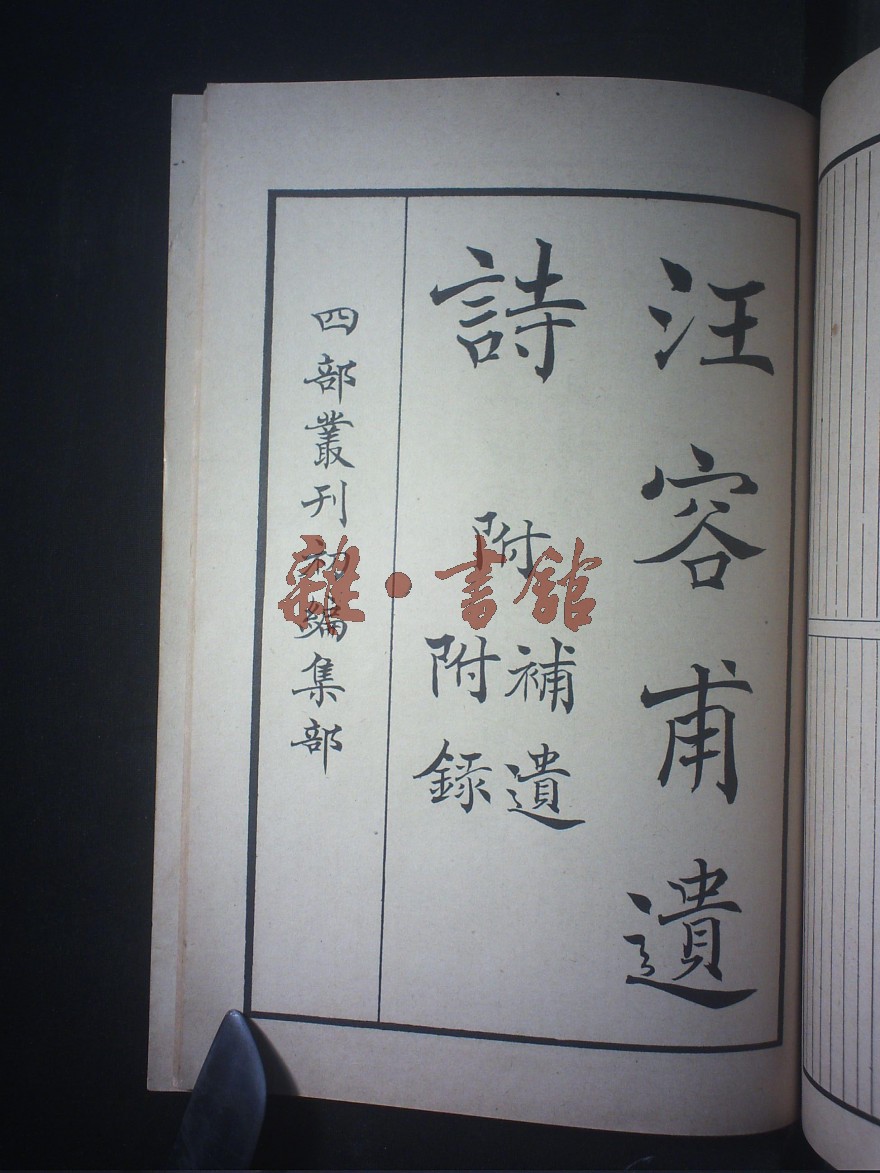 汪容甫遺
詩
附
補遺
附録
四部叢刊初編集部
雜·書館